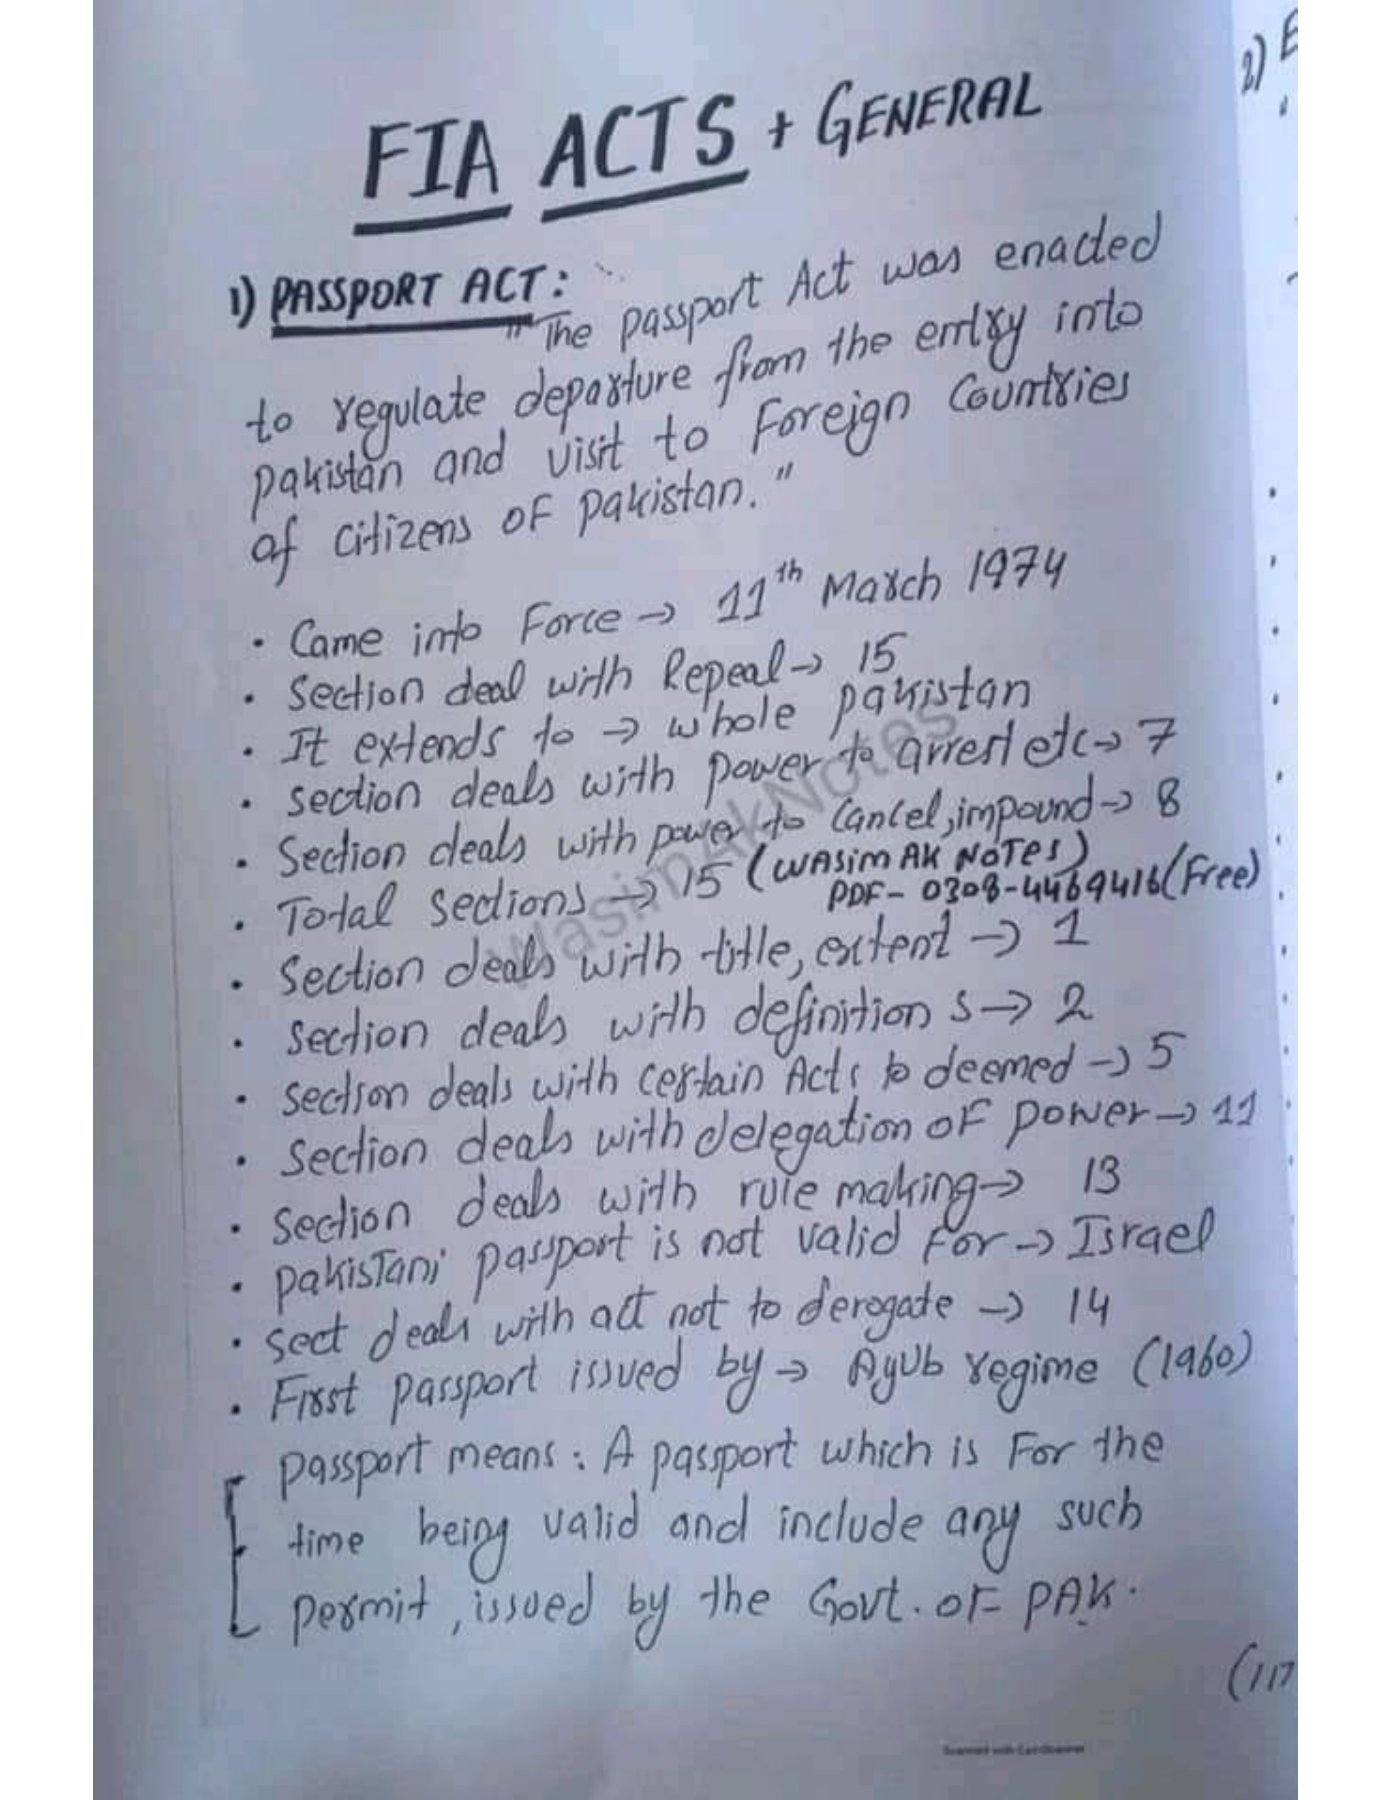 FIA ACTS + GENERAL
1) PASSPORT ACT:
"The passport Act was enacted
to regulate departure from the entry into
pakistan and visit to Foreign Countries
of citizens of pakistan."
• Came into Force → 11th March 1974
• Section deal with Repeal → 15
• It extends to → whole pakistan
• section deals with power to arrest etc → 7
• Section deals with power to Cancel, impound → 8
• Total sections → 15 (WASIM AK NOTES)
PDF- 0308-4469416 (Free)
• Section deals with title, extent → 1
• section deals with definition s → 2
• section deals with certain Acts to deemed → 5
• Section deals with delegation of power → 11
• Section deals with rule making → 13
• pakistani passport is not valid for → Israel
• sect deals with act not to derogate → 14
• First passport issued by → Ayub regime (1960)
passport means : A passport which is For the
time being valid and include any such
permit, issued by the Govt. of PAK.
WasimAkNotes
2) E
(117
Scanned with CamScanner